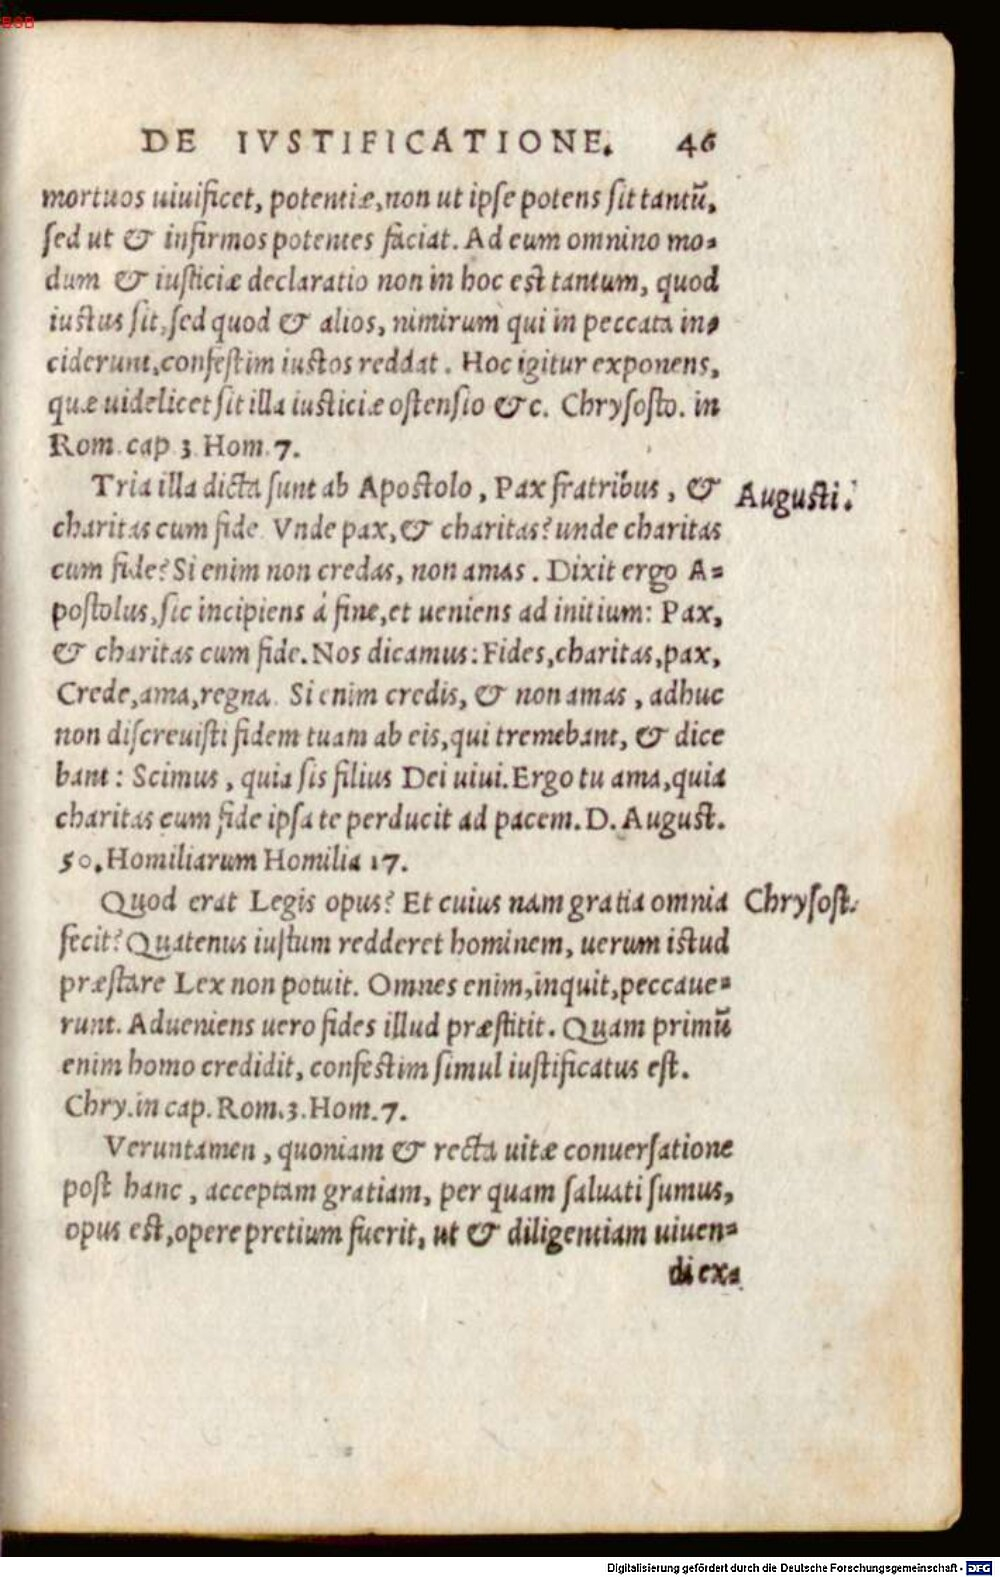 BSB
DE IVSTIFICATIONE. 46
mortuos uiuificet, potentiæ, non ut ipse potens sit tantū,
sed ut & infirmos potentes faciat. Ad eum omnino mo-
dum & iusticiæ declaratio non in hoc est tantum, quod
iustus sit, sed quod & alios, nimirum qui in peccata in-
ciderunt, confestim iustos reddat. Hoc igitur exponens,
quæ uidelicet sit illa iusticiæ ostensio &c. Chrysosto. in
Rom. cap 3. Hom. 7.
Tria illa dicta sunt ab Apostolo, Pax fratribus, &
Augusti.
charitas cum fide. Vnde pax, & charitas? unde charitas
cum fide? Si enim non credas, non amas. Dixit ergo A-
postolus, sic incipiens à fine, et ueniens ad initium: Pax,
& charitas cum fide. Nos dicamus: Fides, charitas, pax,
Crede, ama, regna. Si enim credis, & non amas, adhuc
non discreuisti fidem tuam ab eis, qui tremebant, & dice
bant: Scimus, quia sis filius Dei uiui. Ergo tu ama, quia
charitas cum fide ipsa te perducit ad pacem. D. August.
50. Homiliarum Homilia 17.
Quod erat Legis opus? Et cuius nam gratia omnia
Chrysost.
fecit? Quatenus iustum redderet hominem, uerum istud
præstare Lex non potuit. Omnes enim, inquit, peccaue-
runt. Adueniens uero fides illud præstitit. Quam primū
enim homo credidit, confestim simul iustificatus est.
Chry. in cap. Rom. 3. Hom. 7.
Veruntamen, quoniam & recta uitæ conuersatione
post hanc, acceptam gratiam, per quam saluati sumus,
opus est, opere pretium fuerit, ut & diligentiam uiuen-
di ex-
Digitalisierung gefördert durch die Deutsche Forschungsgemeinschaft - DFG